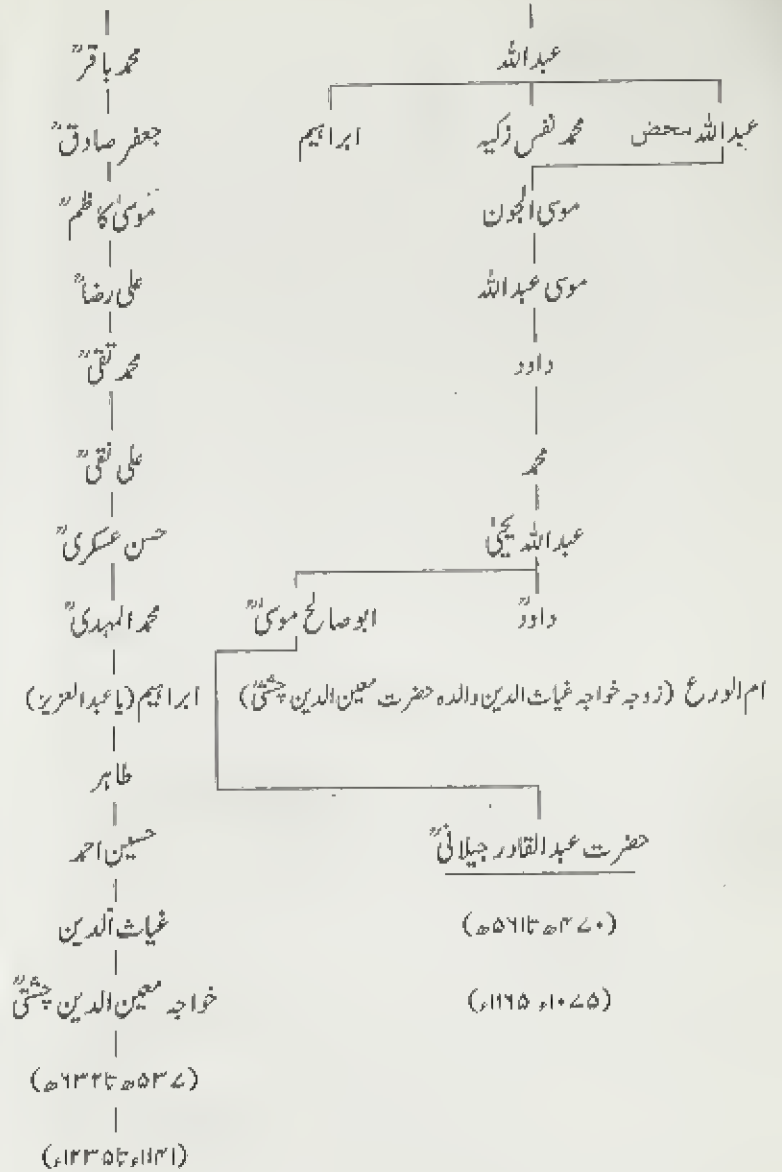 عبداللہ
عبداللہ محض محمد نفس زکیہ ابراہیم
موسیٰ الجون
موسی عبداللہ
داود
محمد
عبداللہ یحییٰ
داودؒ ابوصالح موسیٰؒ
ام الورع (زوجہ خواجہ غیاث الدین والدہ حضرت معین الدین چشتیؒ)
حضرت عبدالقادر جیلانیؒ
(۴۷۰ھ تا ۵۶۱ھ)
(۱۰۷۵ء ۱۱۶۵ء)
محمد باقرؒ
جعفر صادقؒ
موسیٰ کاظمؒ
علی رضاؒ
محمد تقیؒ
علی نقیؒ
حسن عسکریؒ
محمد المہدیؒ
ابراہیم (یا عبدالعزیز)
طاہر
حسین احمد
غیاث الدین
خواجہ معین الدین چشتیؒ
(۵۳۷ھ تا ۶۳۲ھ)
(۱۱۴۱ء تا ۱۲۳۵ء)